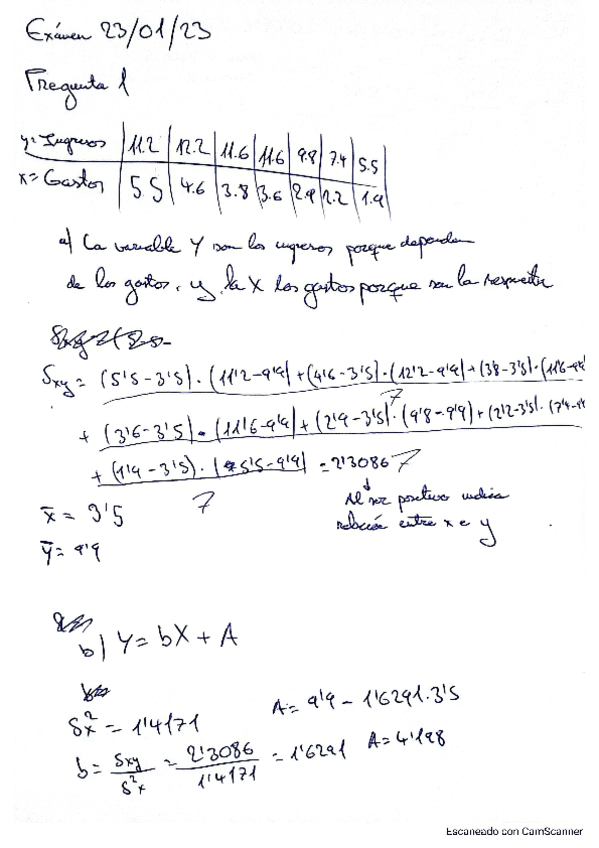 Exámen 23/01/23
Pregunta 1
y = Ingresos | 11.2 | 12.2 | 11.6 | 11.6 | 9.8 | 7.4 | 5.5
x = Gastos | 5.5 | 4.6 | 3.8 | 3.6 | 2.9 | 2.2 | 1.9
a) La variable Y son los ingresos porque dependen
de los gastos, y la X los gastos porque son la respuesta
Sxy = (5'5-3'5)·(11'2-9'9)+(4'6-3'5)·(12'2-9'9)+(3'8-3'5)·(11'6-9'9
7
+ (3'6-3'5)·(11'6-9'9)+(2'9-3'5)·(9'8-9'9)+(2'2-3'5)·(7'4-9'9
+ (1'9-3'5)·(5'5-9'9) = 2'3086
7
Al ser positivo indica
relación entre x e y
x̄ = 3'5
ȳ = 9'9
b) Y = bX + A
Sx² = 1'4171
A = 9'9 - 1'6291·3'5
b = Sxy/S²x = 2'3086/1'4171 = 1'6291 A = 4'198
Escaneado con CamScanner